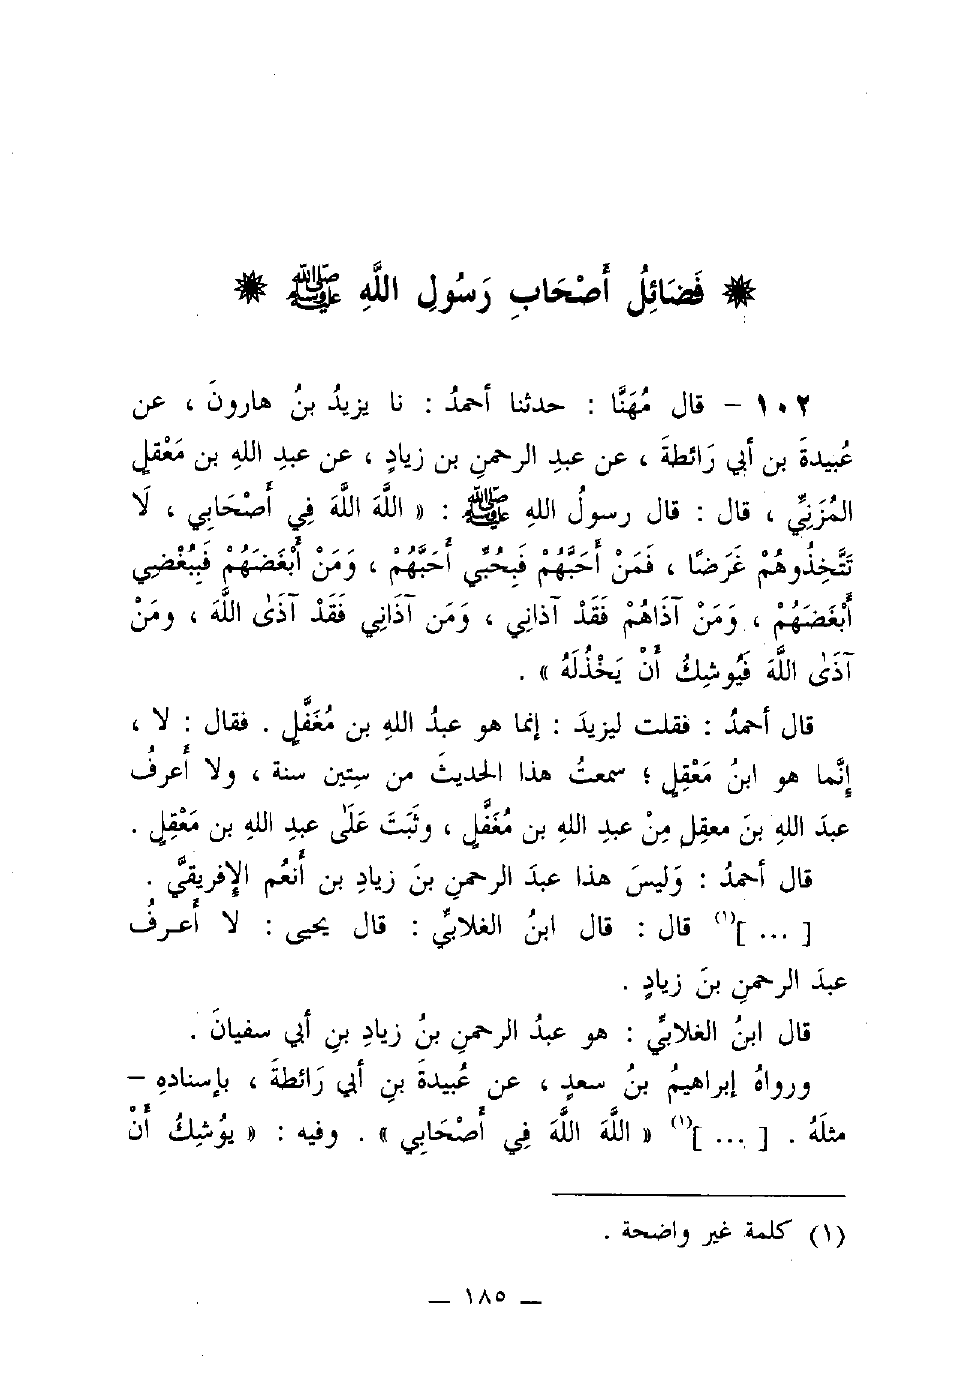 ❋ فَضَائِلُ أَصْحَابِ رَسُولِ اللَّهِ ﷺ ❋
١٠٢ – قال مُهَنَّا : حدثنا أحمدُ : نا يزيدُ بنُ هارونَ ، عن
عُبيدةَ بن أبي رَائطةَ ، عن عبدِ الرحمنِ بن زيادٍ ، عن عبدِ اللهِ بن مَعْقلٍ
المُزَنِيِّ ، قال : قال رسولُ اللهِ ﷺ : « اللَّهَ اللَّهَ فِي أَصْحَابِي ، لَا
تَتَّخِذُوهُمْ غَرَضًا ، فَمَنْ أَحَبَّهُمْ فَبِحُبِّي أَحَبَّهُمْ ، وَمَنْ أَبْغَضَهُمْ فَبِبُغْضِي
أَبْغَضَهُمْ ، وَمَنْ آذَاهُمْ فَقَدْ آذانِي ، وَمَن آذَانِي فَقَدْ آذَىٰ اللَّهَ ، ومَنْ
آذَىٰ اللَّهَ فَيُوشِكُ أَنْ يَخْذُلَهُ » .
قال أحمدُ : فقلت ليزيدَ : إنما هو عبدُ اللهِ بن مُغَفَّلٍ . فقال : لا ،
إنَّما هو ابنُ مَعْقِلٍ ؛ سمعتُ هذا الحديثَ من سِتِين سنة ، ولا أَعرفُ
عبدَ اللهِ بنَ معقِلٍ مِنْ عبدِ الله بن مُغَفَّلٍ ، وثَبَتَ عَلَىٰ عبدِ اللهِ بن مَعْقِلٍ .
قال أحمدُ : وَليسَ هذا عبدَ الرحمنِ بنَ زيادِ بن أَنعُم الإفريقيَّ .
[ ... ](١) قال : قال ابنُ الغلابيِّ : قال يحيى : لا أَعـرفُ
عبدَ الرحمنِ بنَ زيادٍ .
قال ابنُ الغلابيِّ : هو عبدُ الرحمنِ بنُ زيادِ بنِ أبي سفيانَ .
ورواهُ إبراهيمُ بنُ سعدٍ ، عن عُبيدةَ بنِ أبي رَائطةَ ، بإسنادِهِ –
مثلَهُ . [ ... ](١) « اللَّهَ اللَّهَ فِي أَصْحَابِي » . وفيه : « يوُشِكُ أَنْ
(١) كلمة غير واضحة .
— ١٨٥ —